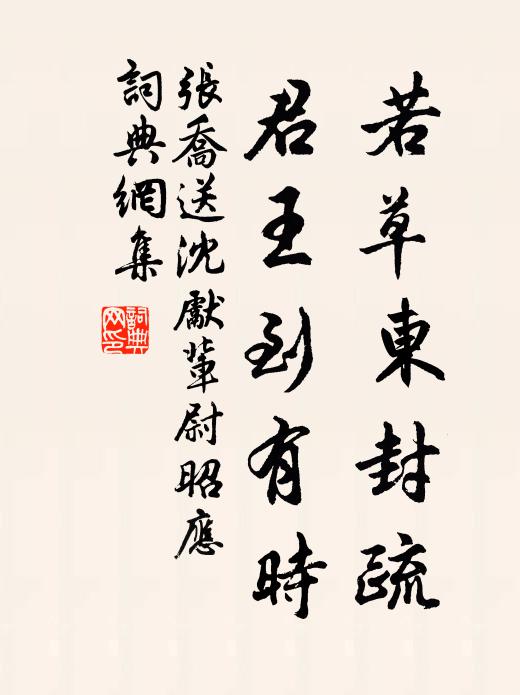 若草東封疏
君王到有時
張喬送沈獻輩尉昭應
詞典網集
詞典网印